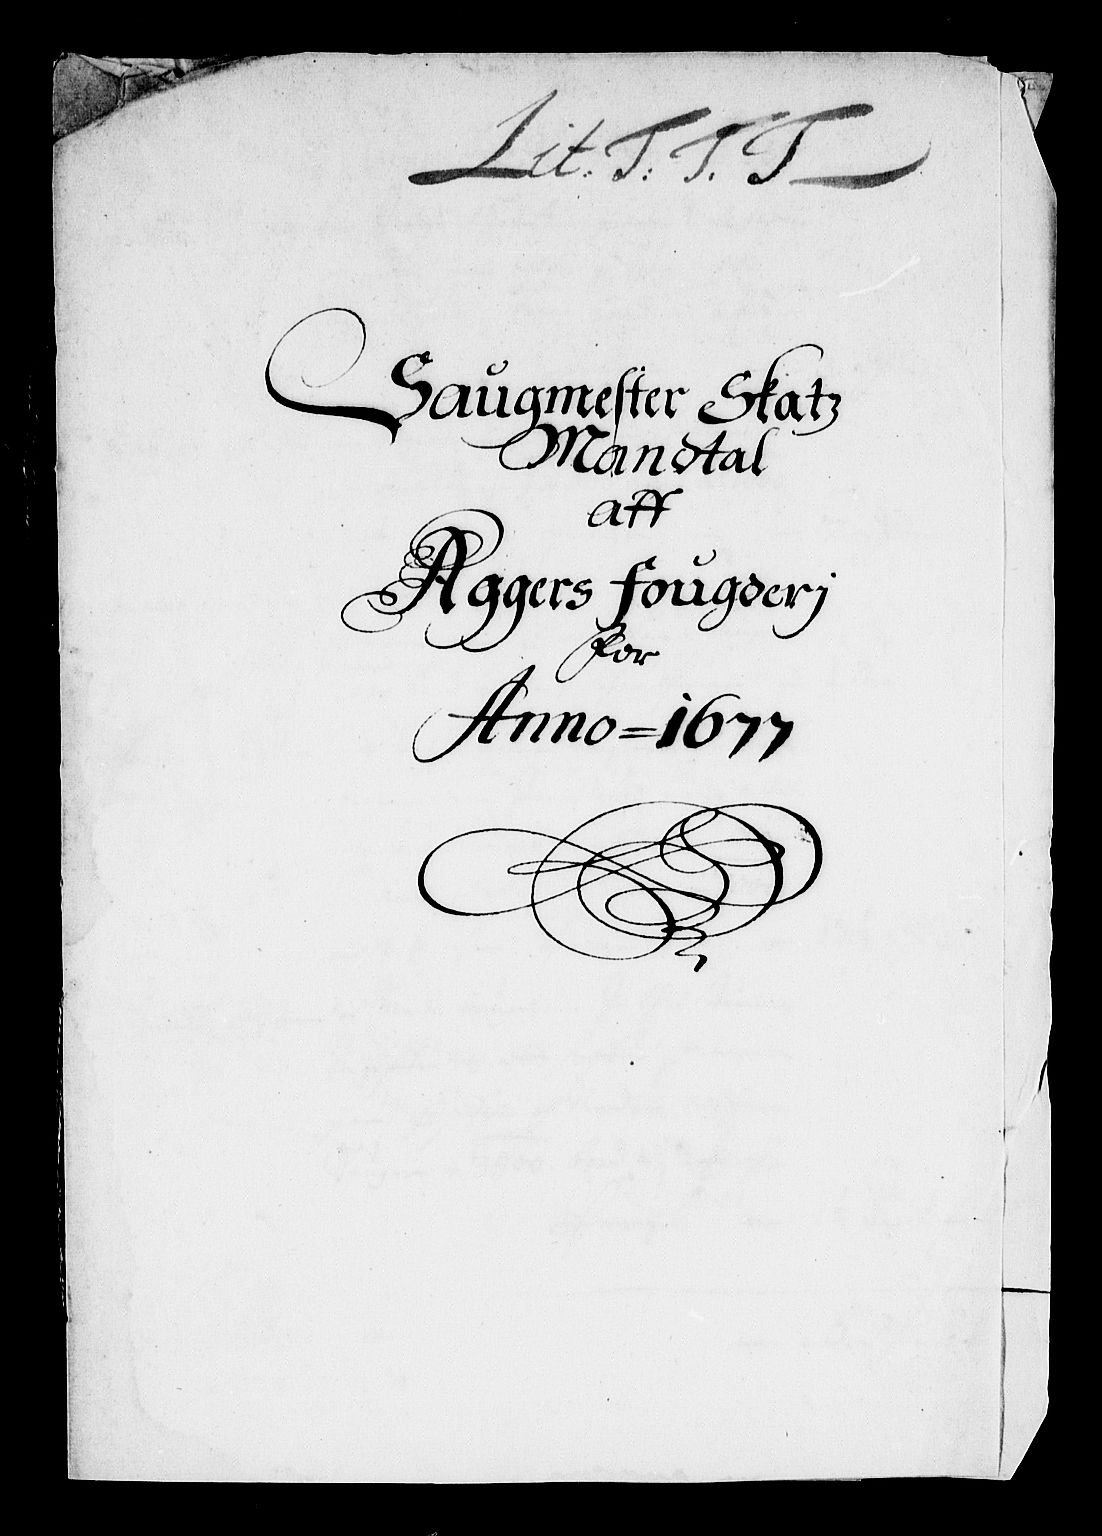 Lit. T: T. T
Saugmester Skatz
Mandtal
aff
Aggers fougderj
for
Anno = 1677